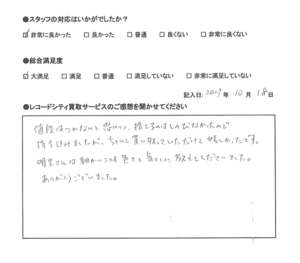 ●スタッフの対応はいかがでしたか？
☑ 非常に良かった □ 良かった □ 普通 □ 良くない □ 非常に良くない
●総合満足度
☑ 大満足 □ 満足 □ 普通 □ 満足していない □ 非常に満足していない
記入日: 2023年 10月 18日
●レコードシティ買取サービスのご感想を聞かせてください
値段はつかないと思いつつ、捨てるのはしのびなかったので
持ち込みましたが、ちゃんと買い取っていただけて嬉しかったです。
さんは細かいことも色々と 教えてくださいました。
ありがとうございました。